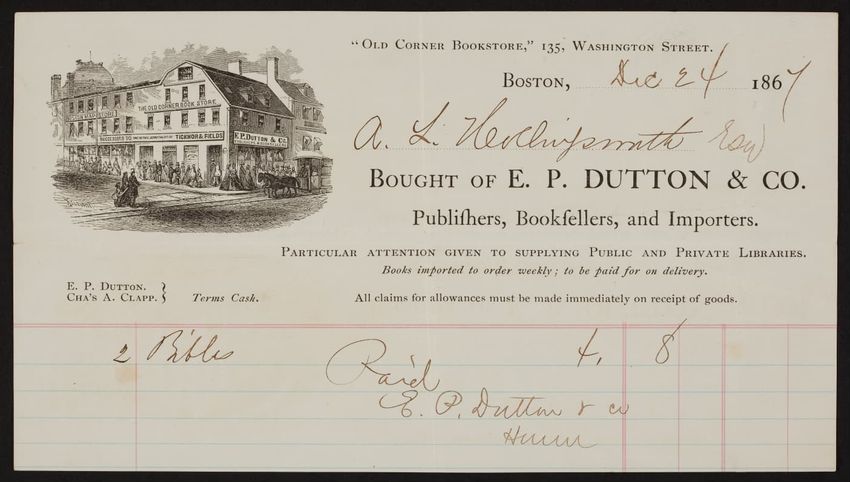 "Old Corner Bookstore," 135, Washington Street.
Boston, Dec 24 1867
A. L. Hollingsworth Esq
Bought of E. P. DUTTON & CO.
Publiſhers, Bookſellers, and Importers.
Particular attention given to supplying Public and Private Libraries.
Books imported to order weekly; to be paid for on delivery.
THE OLD CORNER BOOK STORE
TICKNOR & FIELDS
E. P. DUTTON & CO.
E. P. Dutton. }
Cha's A. Clapp. }
Terms Cash.
All claims for allowances must be made immediately on receipt of goods.
2 Bibles 4, 8
Paid
E. P. Dutton & co